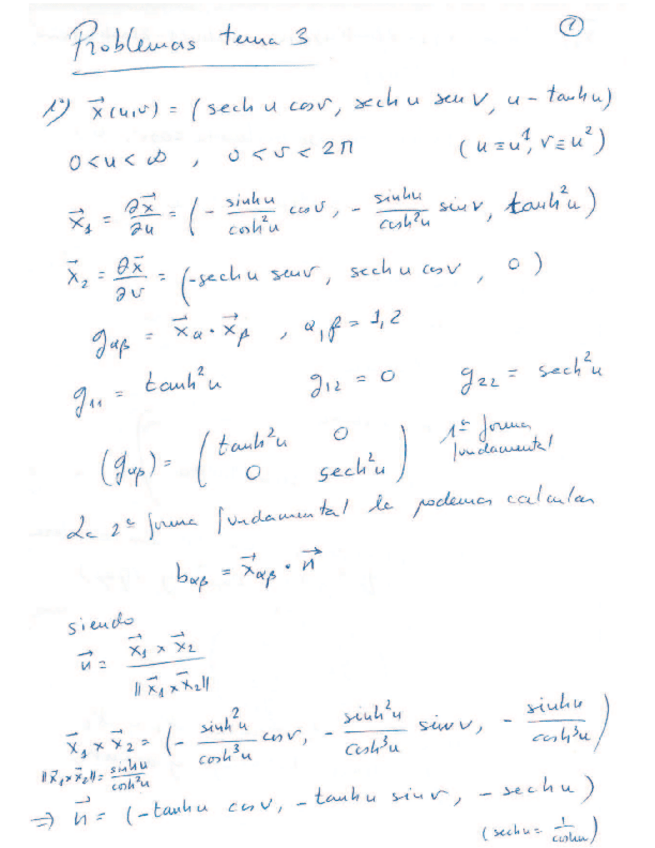 ①
Problemas tema 3
1º) x⃗(u,v) = (sech u cos v, sech u sen v, u - tanh u)
0<u<∞ , 0<v<2π (u≡u¹, v≡u²)
x⃗₁ = ∂x⃗/∂u = (- sinhu/cosh²u cos v, - sinhu/cosh²u sin v, tanh²u)
x⃗₂ = ∂x⃗/∂v = (-sech u sen v, sech u cos v, 0)
gαβ = x⃗α · x⃗β , α,β = 1,2
g₁₁ = tanh²u g₁₂ = 0 g₂₂ = sech²u
(gαβ) = (tanh²u 0
0 sech²u) 1ª forma fundamental
La 2ª forma fundamental la podemos calcular
bαβ = x⃗αβ · n⃗
siendo
n⃗ = x⃗₁ × x⃗₂ / ‖x⃗₁ × x⃗₂‖
x⃗₁ × x⃗₂ = (- sinh²u/cosh³u cos v, - sinh²u/cosh³u sin v, - sinhu/cosh³u)
‖x⃗₁×x⃗₂‖ = sinhu/cosh²u
⇒ n⃗ = (-tanhu cos v, -tanhu sin v, - sechu)
(sechu = 1/coshu)